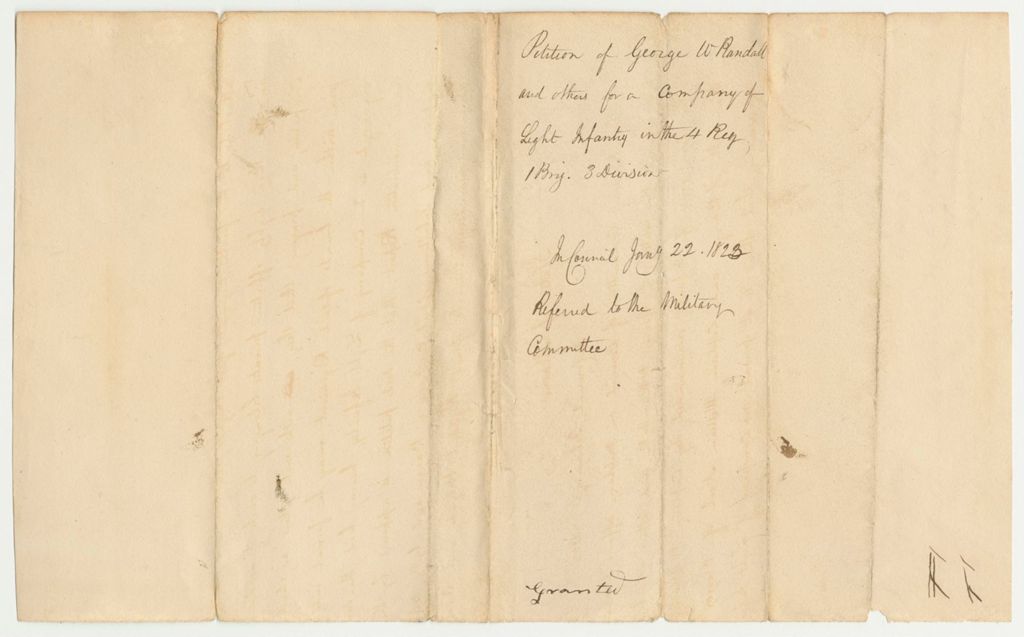 Petition of George W Randall
and others for a Company of
Light Infantry in the 4 Reg
1 Brig. 3 Division
In Council Jany 22. 1823
Referred to the Military
Committee
Granted